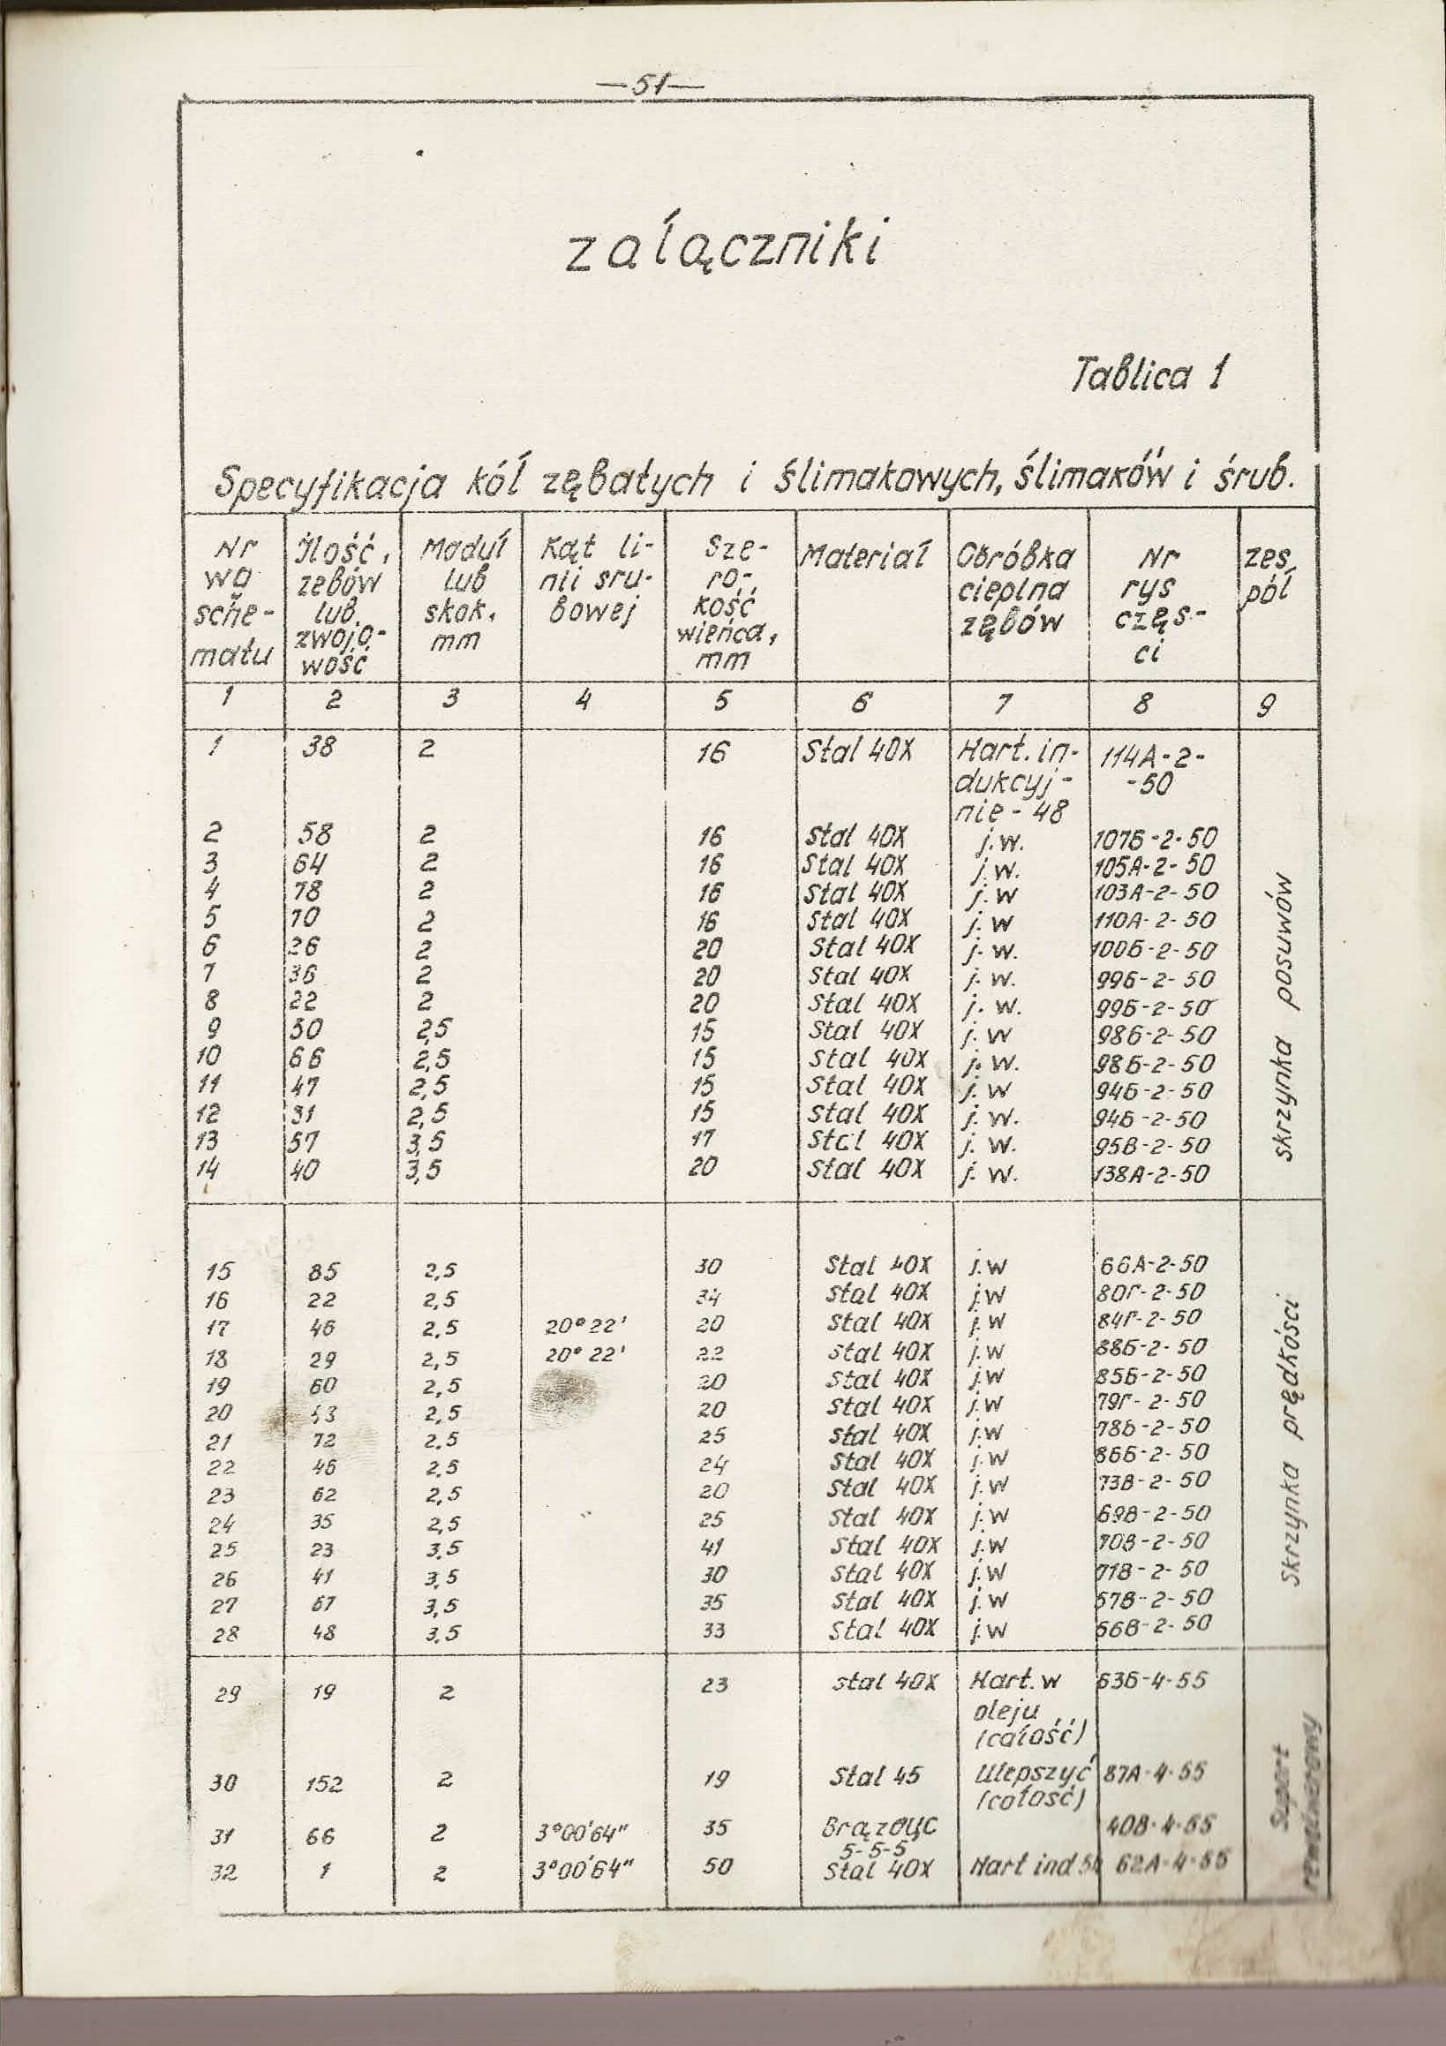 —51—
załączniki
Tablica 1
Specyfikacja kół zębatych i ślimakowych, ślimaków i śrub.
Nr wg sche-matu | Ilość zębów lub zwojo-wość | Moduł lub skok, mm | Kąt li-nii śru-bowej | Sze-ro-kość wieńca, mm | Materiał | Obróbka cieplna zębów | Nr rys częś-ci | zes pół
1 2 3 4 5 6 7 8 9
1 38 2 16 Stal 40X Hart. in-dukcyj-nie - 48 114A-2--50
2 58 2 16 Stal 40X j.w. 107Б-2-50
3 64 2 16 Stal 40X j.w. 105A-2-50
4 78 2 16 Stal 40X j.w 103A-2-50
5 70 2 16 Stal 40X j.w 110A-2-50
6 26 2 20 Stal 40X j.w. 100Б-2-50
7 36 2 20 Stal 40X j.w. 99Б-2-50
8 22 2 20 Stal 40X j.w. 99Б-2-50
9 50 2,5 15 Stal 40X j.w 98Б-2-50
10 66 2,5 15 Stal 40X j.w. 98Б-2-50
11 47 2,5 15 Stal 40X j.w 94Б-2-50
12 31 2,5 15 Stal 40X j.w. 94Б-2-50
13 57 3,5 17 Stal 40X j.w. 95B-2-50
14 40 3,5 20 Stal 40X j.w. 138A-2-50
skrzynka posuwów
15 85 2,5 30 Stal 40X j.w 66A-2-50
16 22 2,5 34 Stal 40X j.w 80Г-2-50
17 46 2,5 20°22' 20 Stal 40X j.w 84Г-2-50
18 29 2,5 20°22' 22 Stal 40X j.w 88Б-2-50
19 60 2,5 20 Stal 40X j.w 85Б-2-50
20 2,5 20 Stal 40X j.w 79Г-2-50
21 72 2,5 25 Stal 40X j.w 78Б-2-50
22 46 2,5 24 Stal 40X j.w 86Б-2-50
23 62 2,5 20 Stal 40X j.w 73B-2-50
24 35 2,5 25 Stal 40X j.w 69B-2-50
25 23 3,5 41 Stal 40X j.w 70B-2-50
26 41 3,5 30 Stal 40X j.w 71B-2-50
27 67 3,5 35 Stal 40X j.w 67B-2-50
28 48 3,5 33 Stal 40X j.w
Skrzynka prędkości
29 19 2 23 Stal 40X Hart. w oleju (całość) 63Б-4-55
30 152 2 19 Stal 45 Ulepszyć (całość) 87A-4-55
31 66 2 3°00'64" 35 Brąz OЦC 5-5-5 40B-4-55
32 1 2 3°00'64" 50 Stal 40X Hart ind 62A-4-55
Suport rewolwerowy